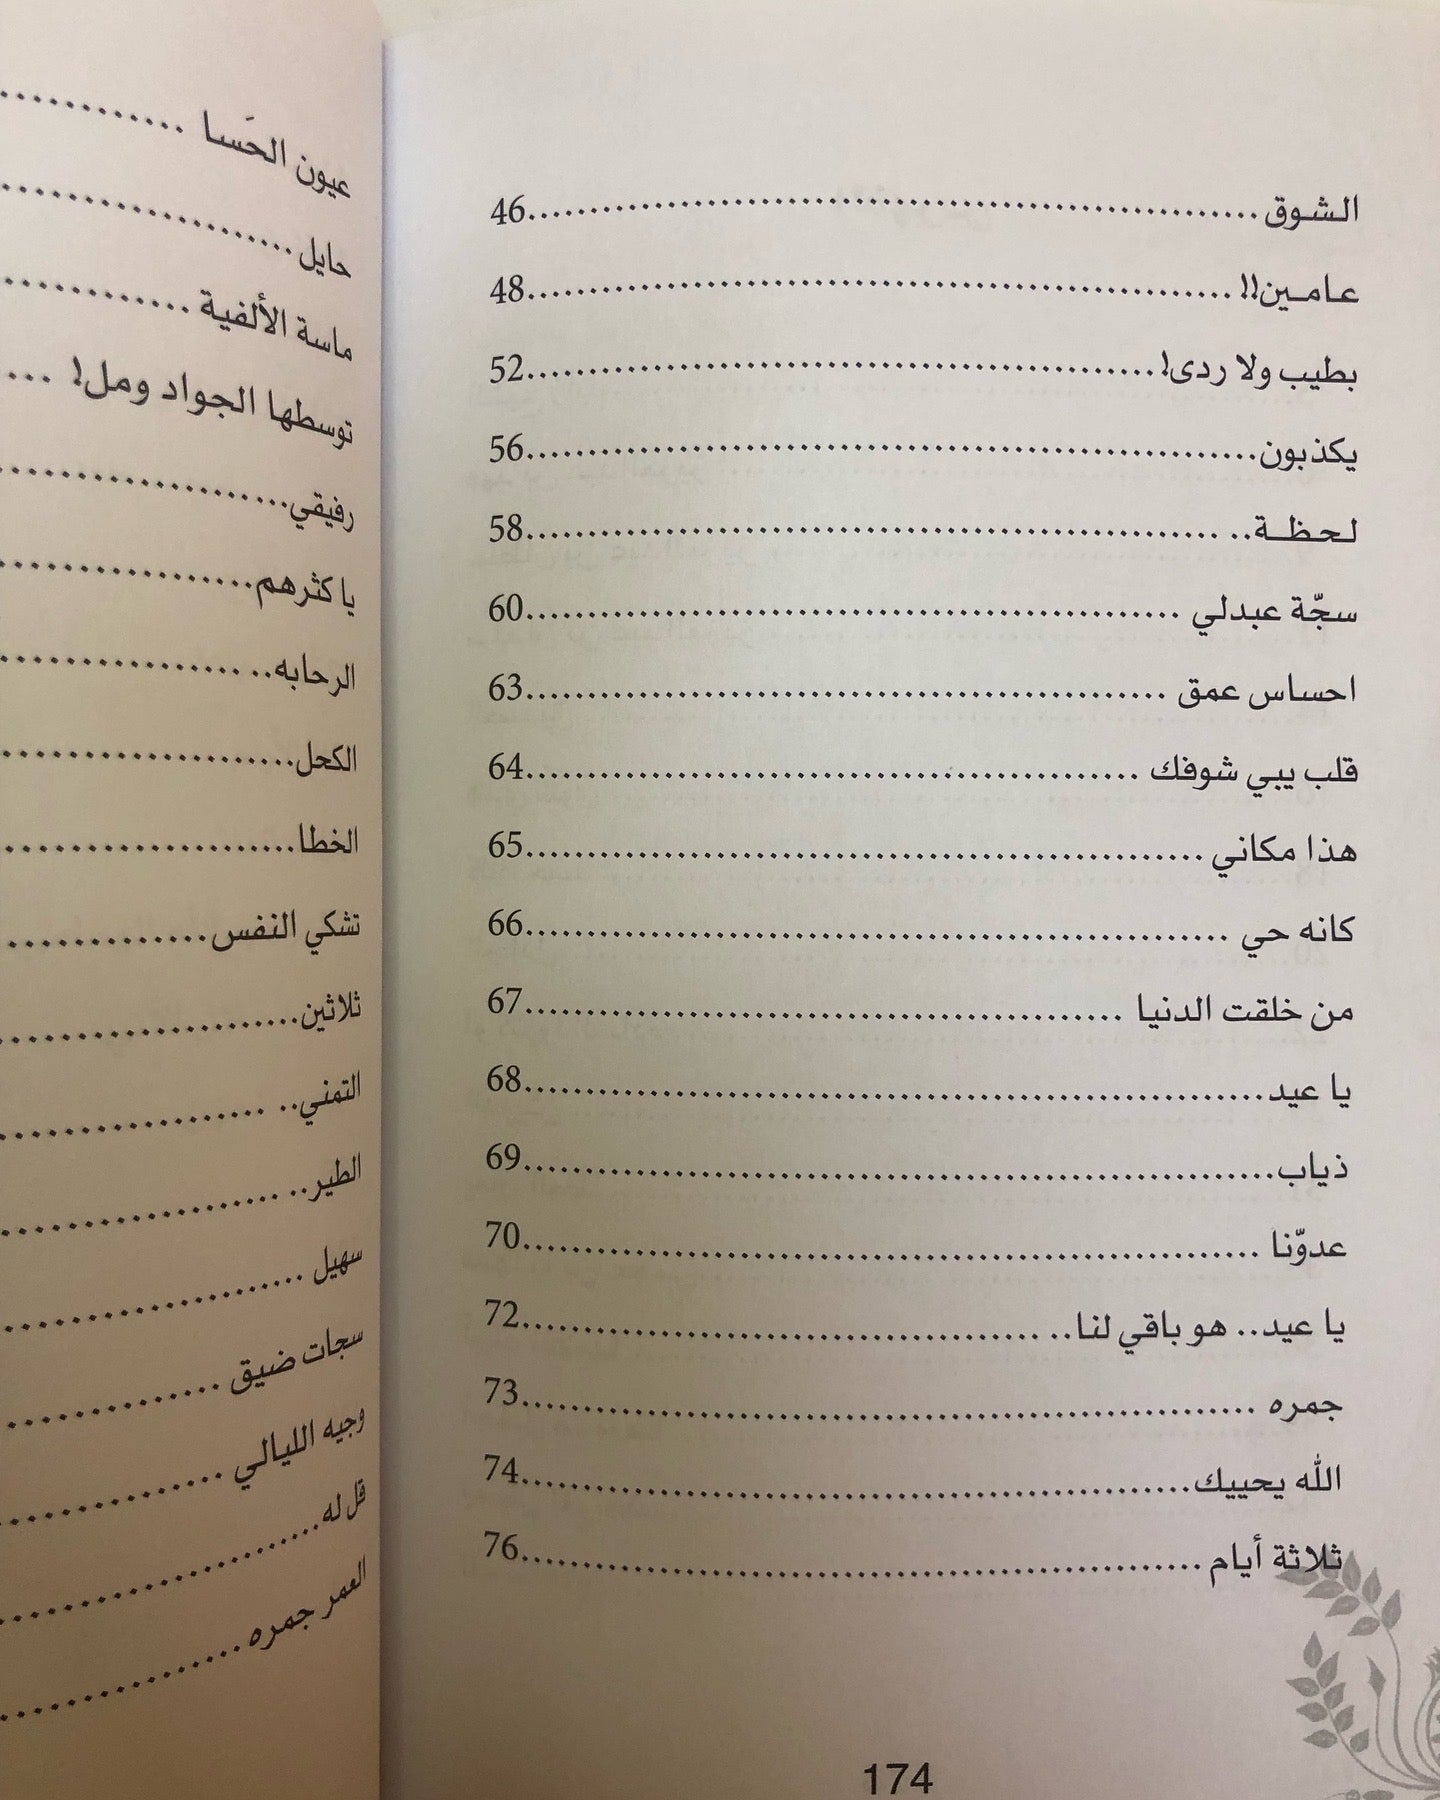 الشوق 46
عامين!! 48
بطيب ولا ردى! 52
يكذبون 56
لحظة.. 58
سجّة عبدلي 60
احساس عمق 63
قلب يبي شوفك 64
هذا مكاني 65
كانه حي 66
من خلقت الدنيا 67
يا عيد 68
ذياب 69
عدوّنا 70
يا عيد.. هو باقي لنا.. 72
جمره 73
الله يحييك 74
ثلاثة أيام 76
174
عيون الحَسا
حايل
ماسة الألفية
توسطها الجواد ومل!
رفيقي
يا كثرهم
الرحابه..
الكحل
الخطا
تشكي النفس
ثلاثين
التمني..
الطير..
سهيل
سجات ضيق
وجيه الليالي
قل له
العمر جمره